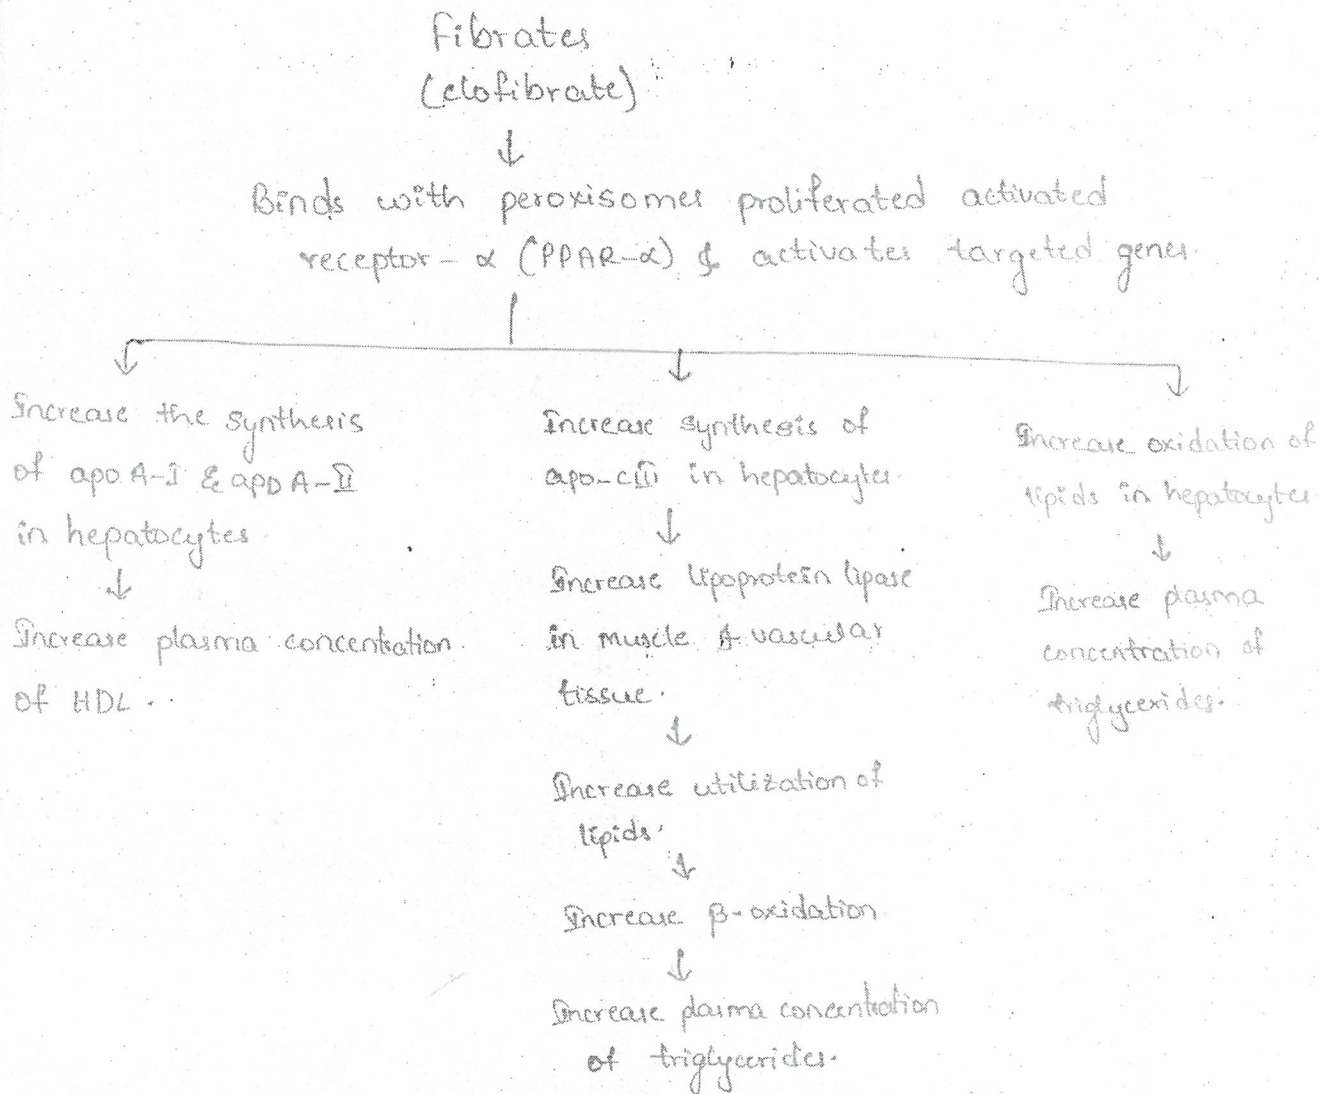 Fibrates
(clofibrate)
Binds with peroxisomes proliferated activated
receptor - α (PPAR-α) & activates targeted genes.
Increase the synthesis
of apo A-I & apo A-II
in hepatocytes
Increase plasma concentration
of HDL.
Increase synthesis of
apo-cIII in hepatocytes
Increase lipoprotein lipase
in muscle & vascular
tissue.
Increase utilization of
lipids
Increase β-oxidation
Increase plasma concentration
of triglycerides.
Increase oxidation of
lipids in hepatocytes
Increase plasma
concentration of
triglycerides.